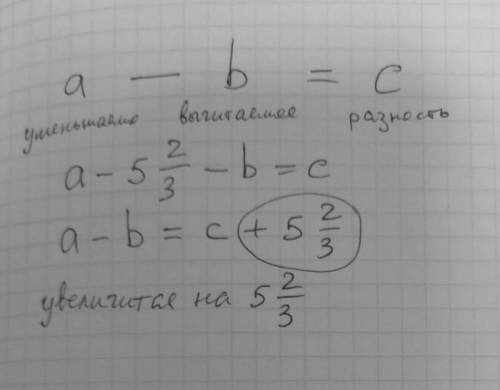 a — b = c
уменьшаемое вычитаемое разность
a - 5 2/3 - b = c
a - b = c + 5 2/3
увеличится на 5 2/3